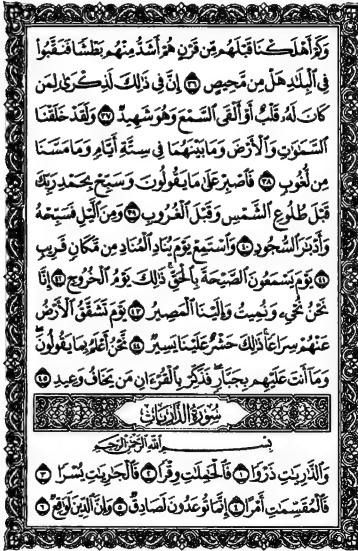 وَكَمْ أَهْلَكْنَا قَبْلَهُم مِّن قَرْنٍ هُمْ أَشَدُّ مِنْهُم بَطْشًا فَنَقَّبُوا۟
فِى ٱلْبِلَٰدِ هَلْ مِن مَّحِيصٍ ٣٦ إِنَّ فِى ذَٰلِكَ لَذِكْرَىٰ لِمَن
كَانَ لَهُۥ قَلْبٌ أَوْ أَلْقَى ٱلسَّمْعَ وَهُوَ شَهِيدٌ ٣٧ وَلَقَدْ خَلَقْنَا
ٱلسَّمَٰوَٰتِ وَٱلْأَرْضَ وَمَا بَيْنَهُمَا فِى سِتَّةِ أَيَّامٍ وَمَا مَسَّنَا
مِن لُّغُوبٍ ٣٨ فَٱصْبِرْ عَلَىٰ مَا يَقُولُونَ وَسَبِّحْ بِحَمْدِ رَبِّكَ
قَبْلَ طُلُوعِ ٱلشَّمْسِ وَقَبْلَ ٱلْغُرُوبِ ٣٩ وَمِنَ ٱلَّيْلِ فَسَبِّحْهُ
وَأَدْبَٰرَ ٱلسُّجُودِ ٤٠ وَٱسْتَمِعْ يَوْمَ يُنَادِ ٱلْمُنَادِ مِن مَّكَانٍ قَرِيبٍ
٤١ يَوْمَ يَسْمَعُونَ ٱلصَّيْحَةَ بِٱلْحَقِّ ذَٰلِكَ يَوْمُ ٱلْخُرُوجِ ٤٢ إِنَّا
نَحْنُ نُحْىِۦ وَنُمِيتُ وَإِلَيْنَا ٱلْمَصِيرُ ٤٣ يَوْمَ تَشَقَّقُ ٱلْأَرْضُ
عَنْهُمْ سِرَاعًا ذَٰلِكَ حَشْرٌ عَلَيْنَا يَسِيرٌ ٤٤ نَّحْنُ أَعْلَمُ بِمَا يَقُولُونَ
وَمَا أَنتَ عَلَيْهِم بِجَبَّارٍ فَذَكِّرْ بِٱلْقُرْءَانِ مَن يَخَافُ وَعِيدِ ٤٥
سُورَةُ ٱلذَّارِيَاتِ
بِسْمِ ٱللَّهِ ٱلرَّحْمَٰنِ ٱلرَّحِيمِ
وَٱلذَّٰرِيَٰتِ ذَرْوًا ١ فَٱلْحَٰمِلَٰتِ وِقْرًا ٢ فَٱلْجَٰرِيَٰتِ يُسْرًا ٣
فَٱلْمُقَسِّمَٰتِ أَمْرًا ٤ إِنَّمَا تُوعَدُونَ لَصَادِقٌ ٥ وَإِنَّ ٱلدِّينَ لَوَٰقِعٌ ٦